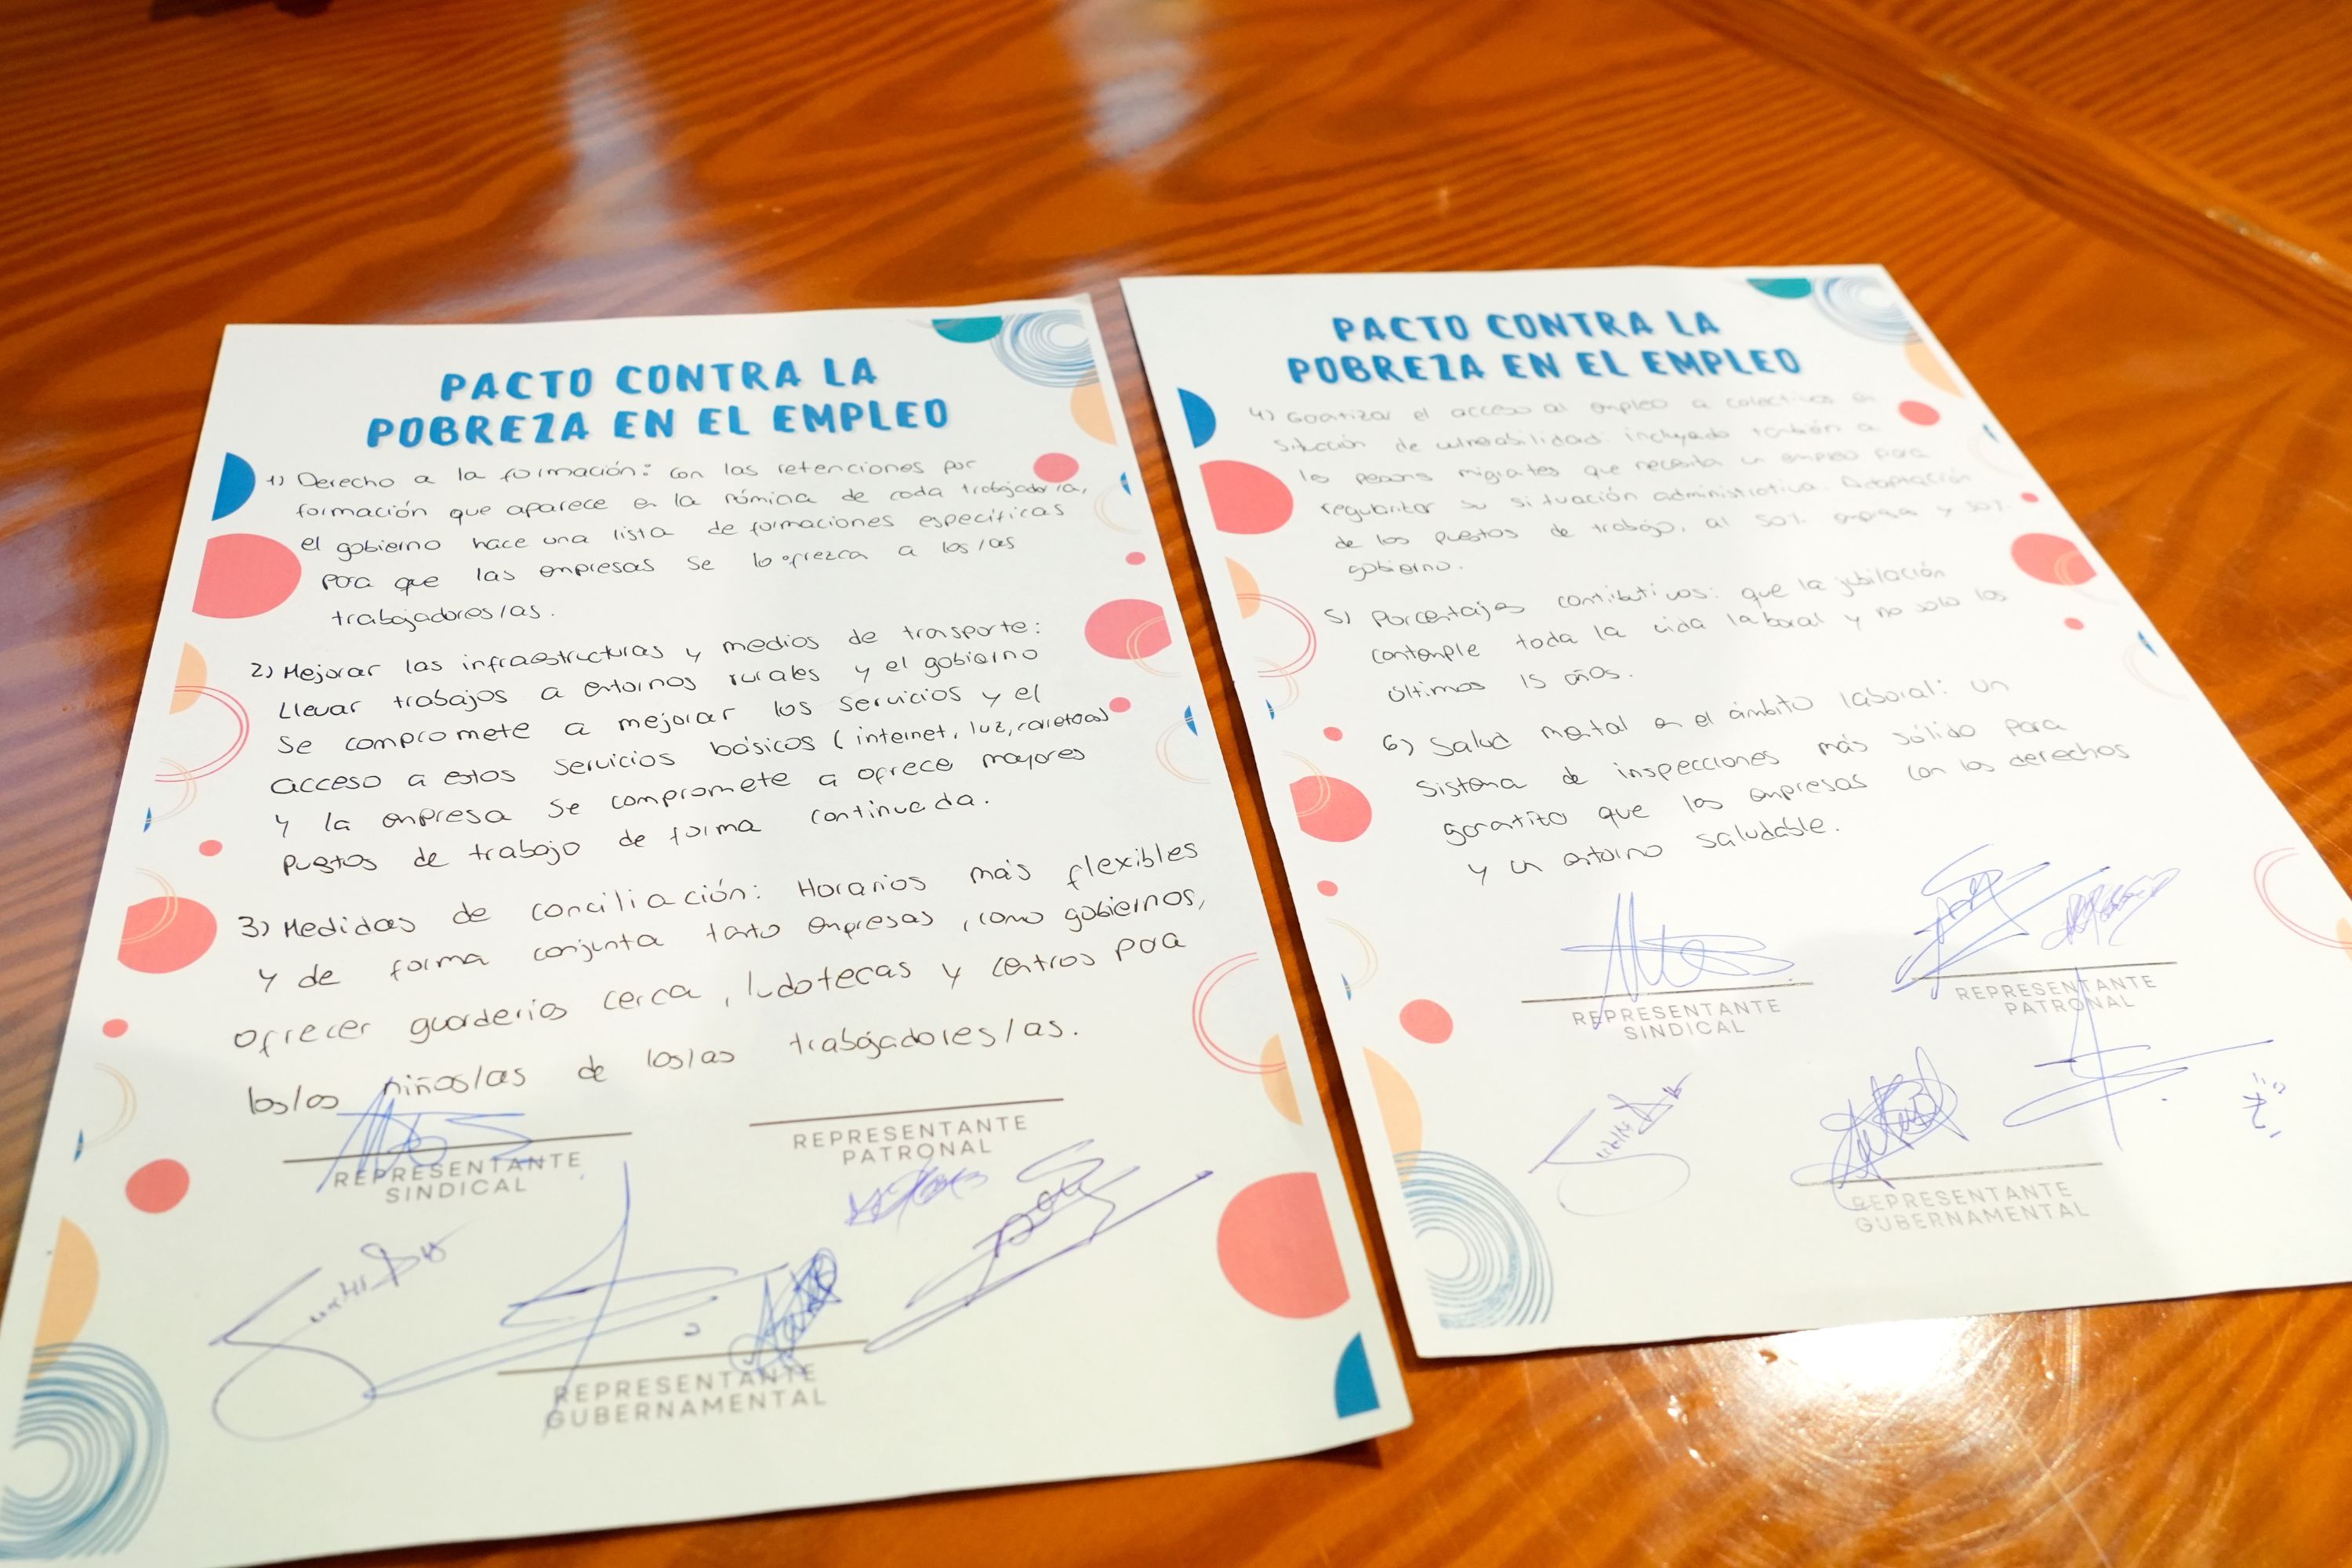 PACTO CONTRA LA
POBREZA EN EL EMPLEO
1) Derecho a la formación: con las retenciones por
formación que aparece en la nómina de cada trabajador/a,
el gobierno hace una lista de formaciones específicas
para que las empresas se lo ofrezca a los/as
trabajadores/as.
2) Mejorar las infraestructuras y medios de trasporte:
Llevar trabajos a entornos rurales y el gobierno
se compromete a mejorar los servicios y el
acceso a estos servicios básicos (internet, luz, carreteras)
y la empresa se compromete a ofrece mayores
puestos de trabajo de forma continuada.
3) Medidas de conciliación: Horarios más flexibles
y de forma conjunta tanto empresas, como gobiernos,
ofrecer guarderías cerca, ludotecas y centros para
los/as niños/as de los/as trabajadores/as.
REPRESENTANTE
SINDICAL
REPRESENTANTE
PATRONAL
REPRESENTANTE
GUBERNAMENTAL
PACTO CONTRA LA
POBREZA EN EL EMPLEO
4) el acceso al empleo a colectivos en
situación de vulnerabilidad: incluyendo también a
las personas migrantes que necesitan un empleo para
regularizar su situación administrativa. Adaptación
de los puestos de trabajo, al 50% empresa y 50%
gobierno.
5) Porcentajes contributivos: que la jubilación
contemple toda la vida laboral y no solo los
últimos 15 años.
6) Salud mental en el ámbito laboral: un
sistema de inspecciones más sólido para
que las empresas con los derechos
y un entorno saludable.
REPRESENTANTE
SINDICAL
REPRESENTANTE
PATRONAL
REPRESENTANTE
GUBERNAMENTAL